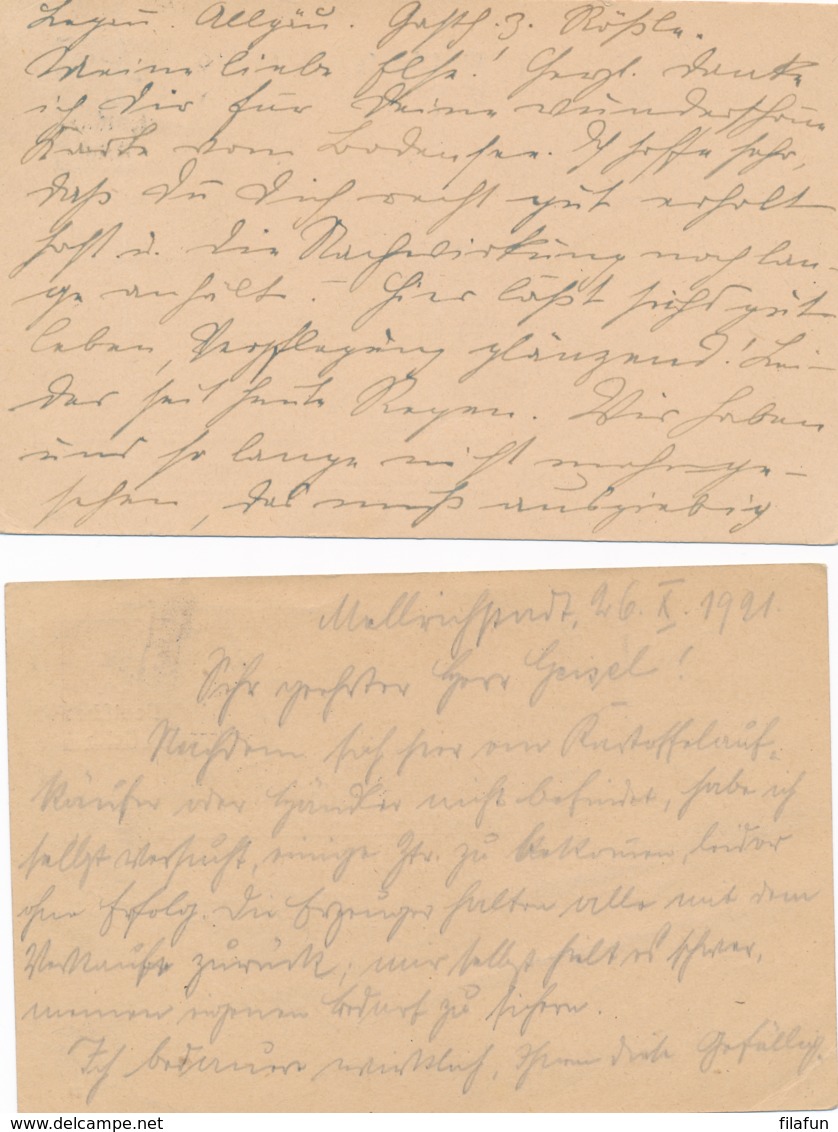 Allgäu. Gasth. z. Rößle.
Meine liebe Else! Herzl. danke
ich Dir für Deine wunderschöne
Karte vom Bodensee. Ich hoffe sehr,
daß Du Dich recht gut erholt
hast u. die Nachwirkung noch lan-
ge anhält. – Hier läßt sichs gut
leben, Verpflegung glänzend! Lei-
der seit heute Regen. Wir haben
uns so lange nicht mehr ge-
sehen, das muß ausgiebig
Mellrichstadt, 26. X. 1921.
Sehr geehrter Herr Geisel!
Nachdem sich hier ein Kartoffelauf-
käufer oder Händler nicht befindet, habe ich
selbst versucht, einige Ztr. zu bekommen, leider
ohne Erfolg. Die Erzeuger halten alle mit dem
Verkaufe zurück; mir selbst hielt es schwer,
meinen eigenen Bedarf zu sichern.
Ich bedauere wirklich, Ihnen diese Gefällig-
www.delcampe.net
filafun